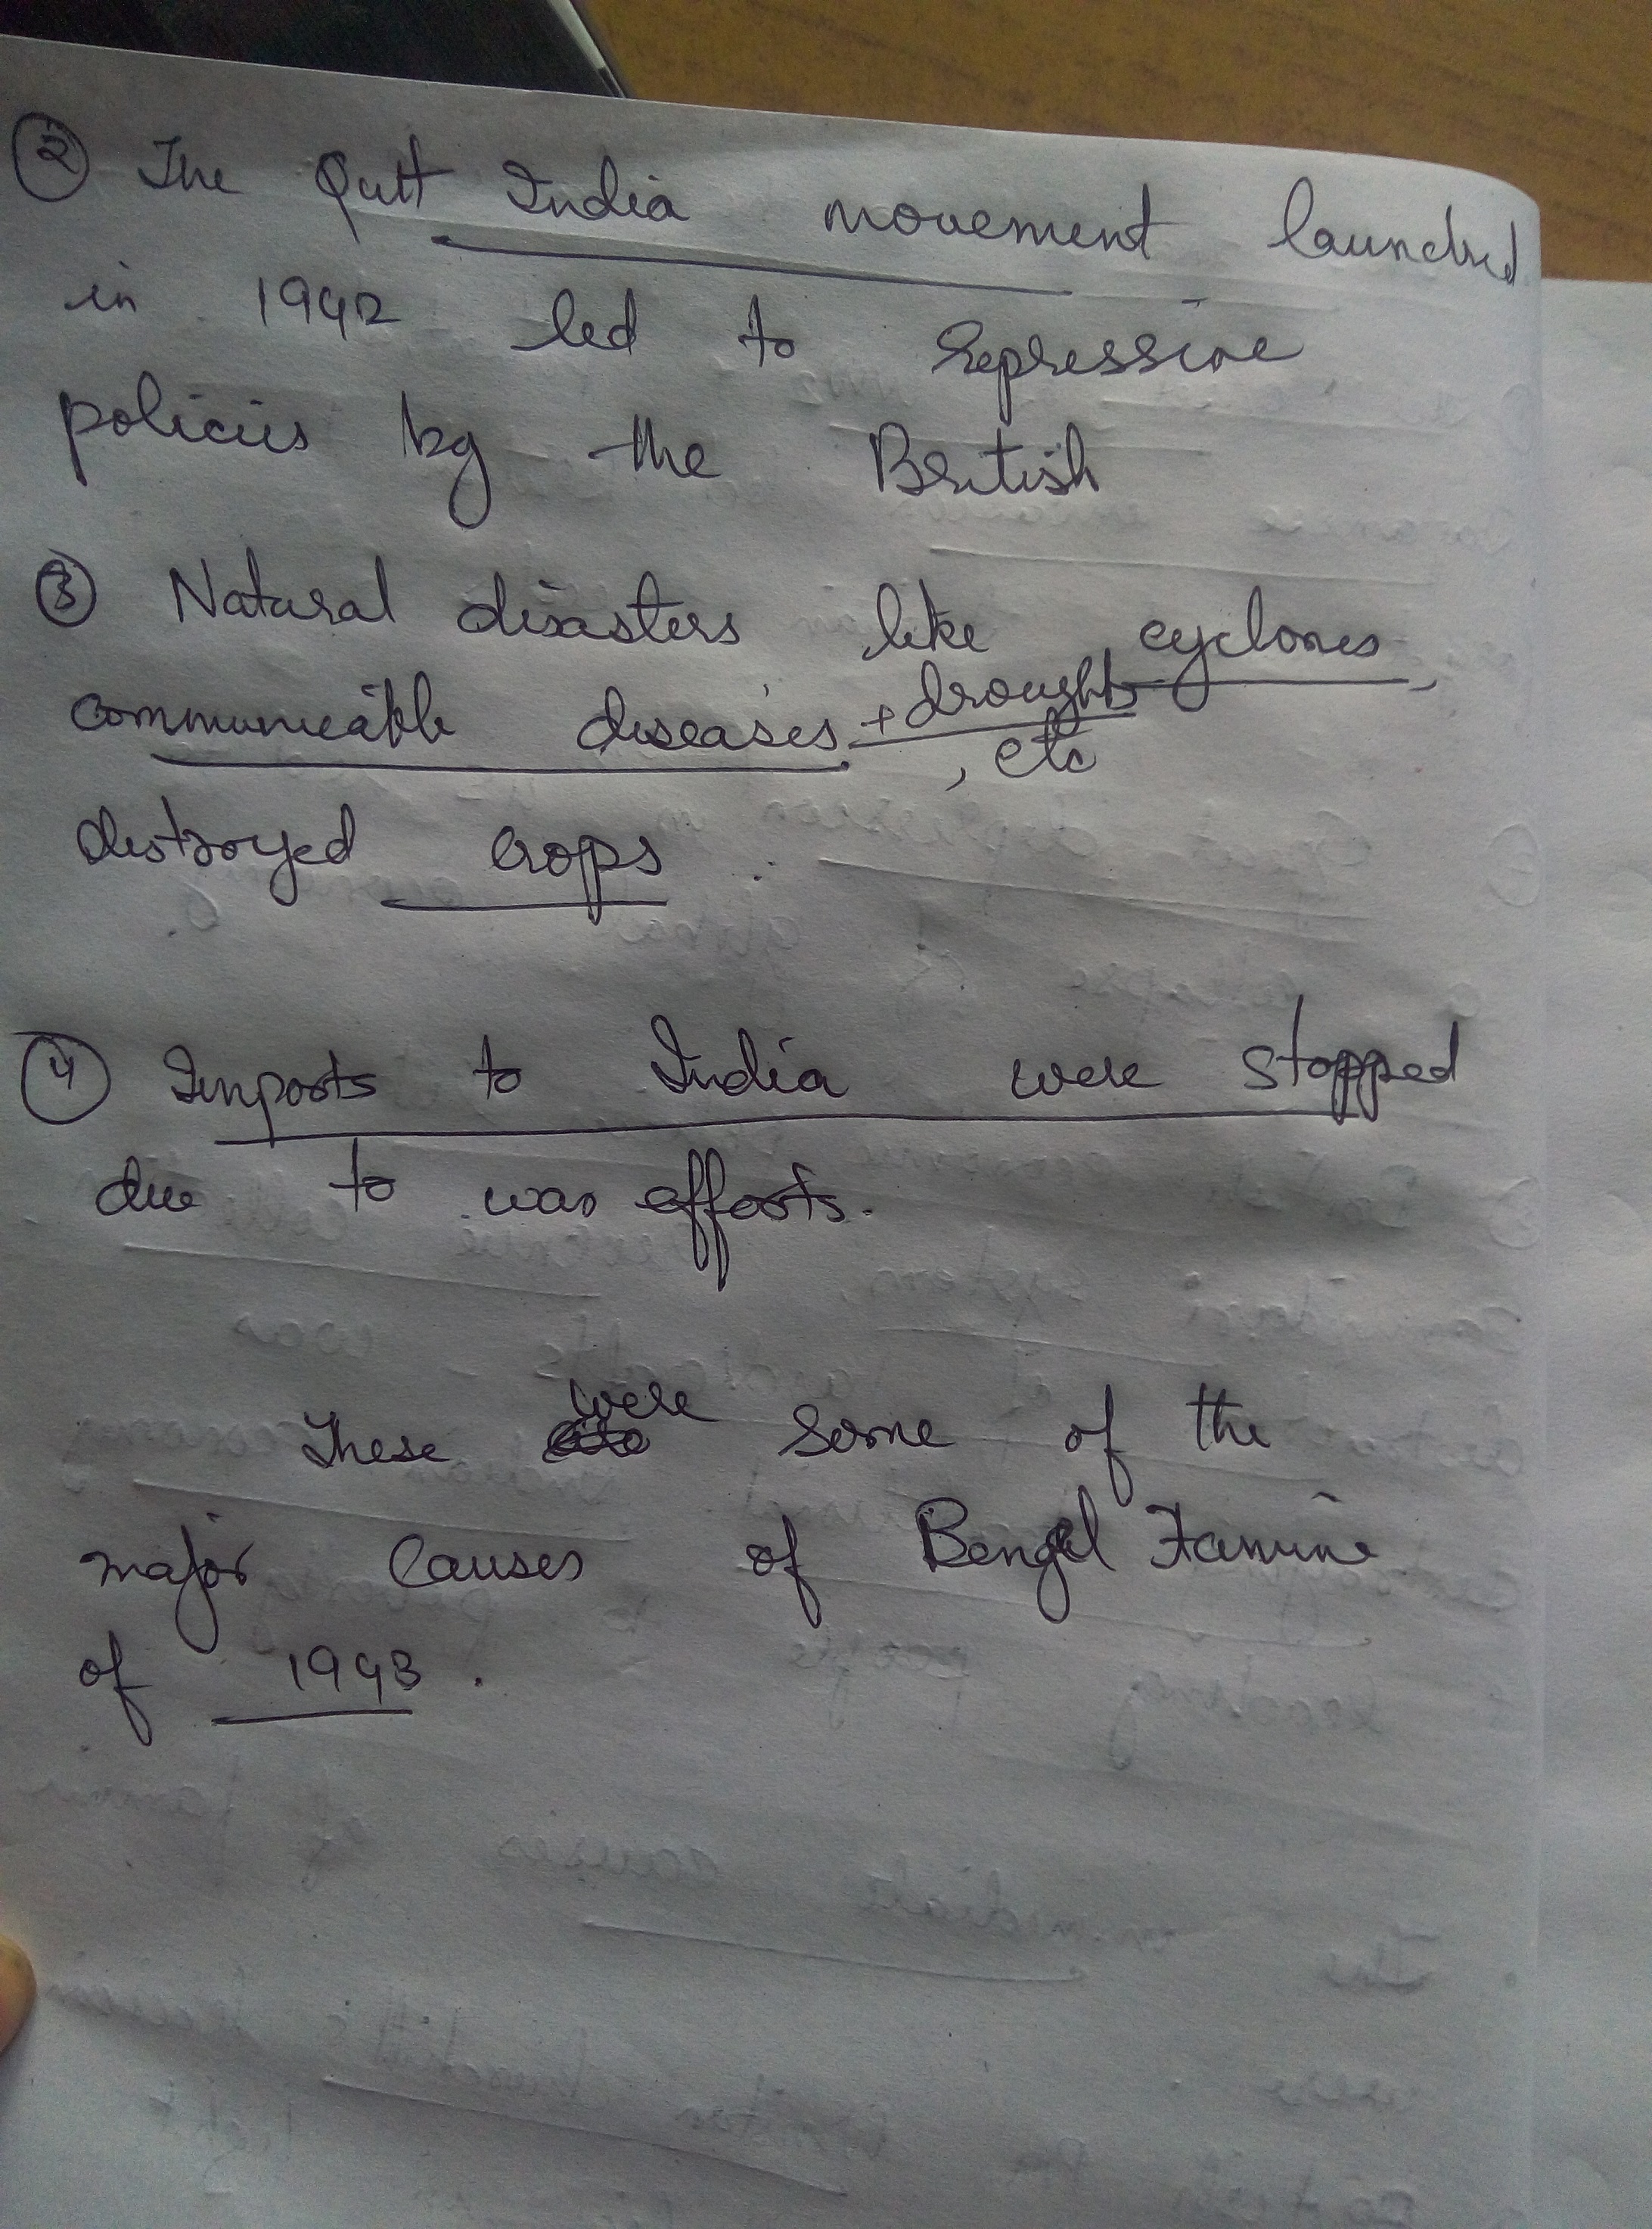 ② The Quit India movement launched
in 1942 led to repressive
policies by the British
③ Natural disasters like cyclones,
communicable diseases + droughts
, etc
destroyed crops.
④ Imports to India were stopped
due to war efforts.
These were some of the
major causes of Bengal Famine
of 1943.